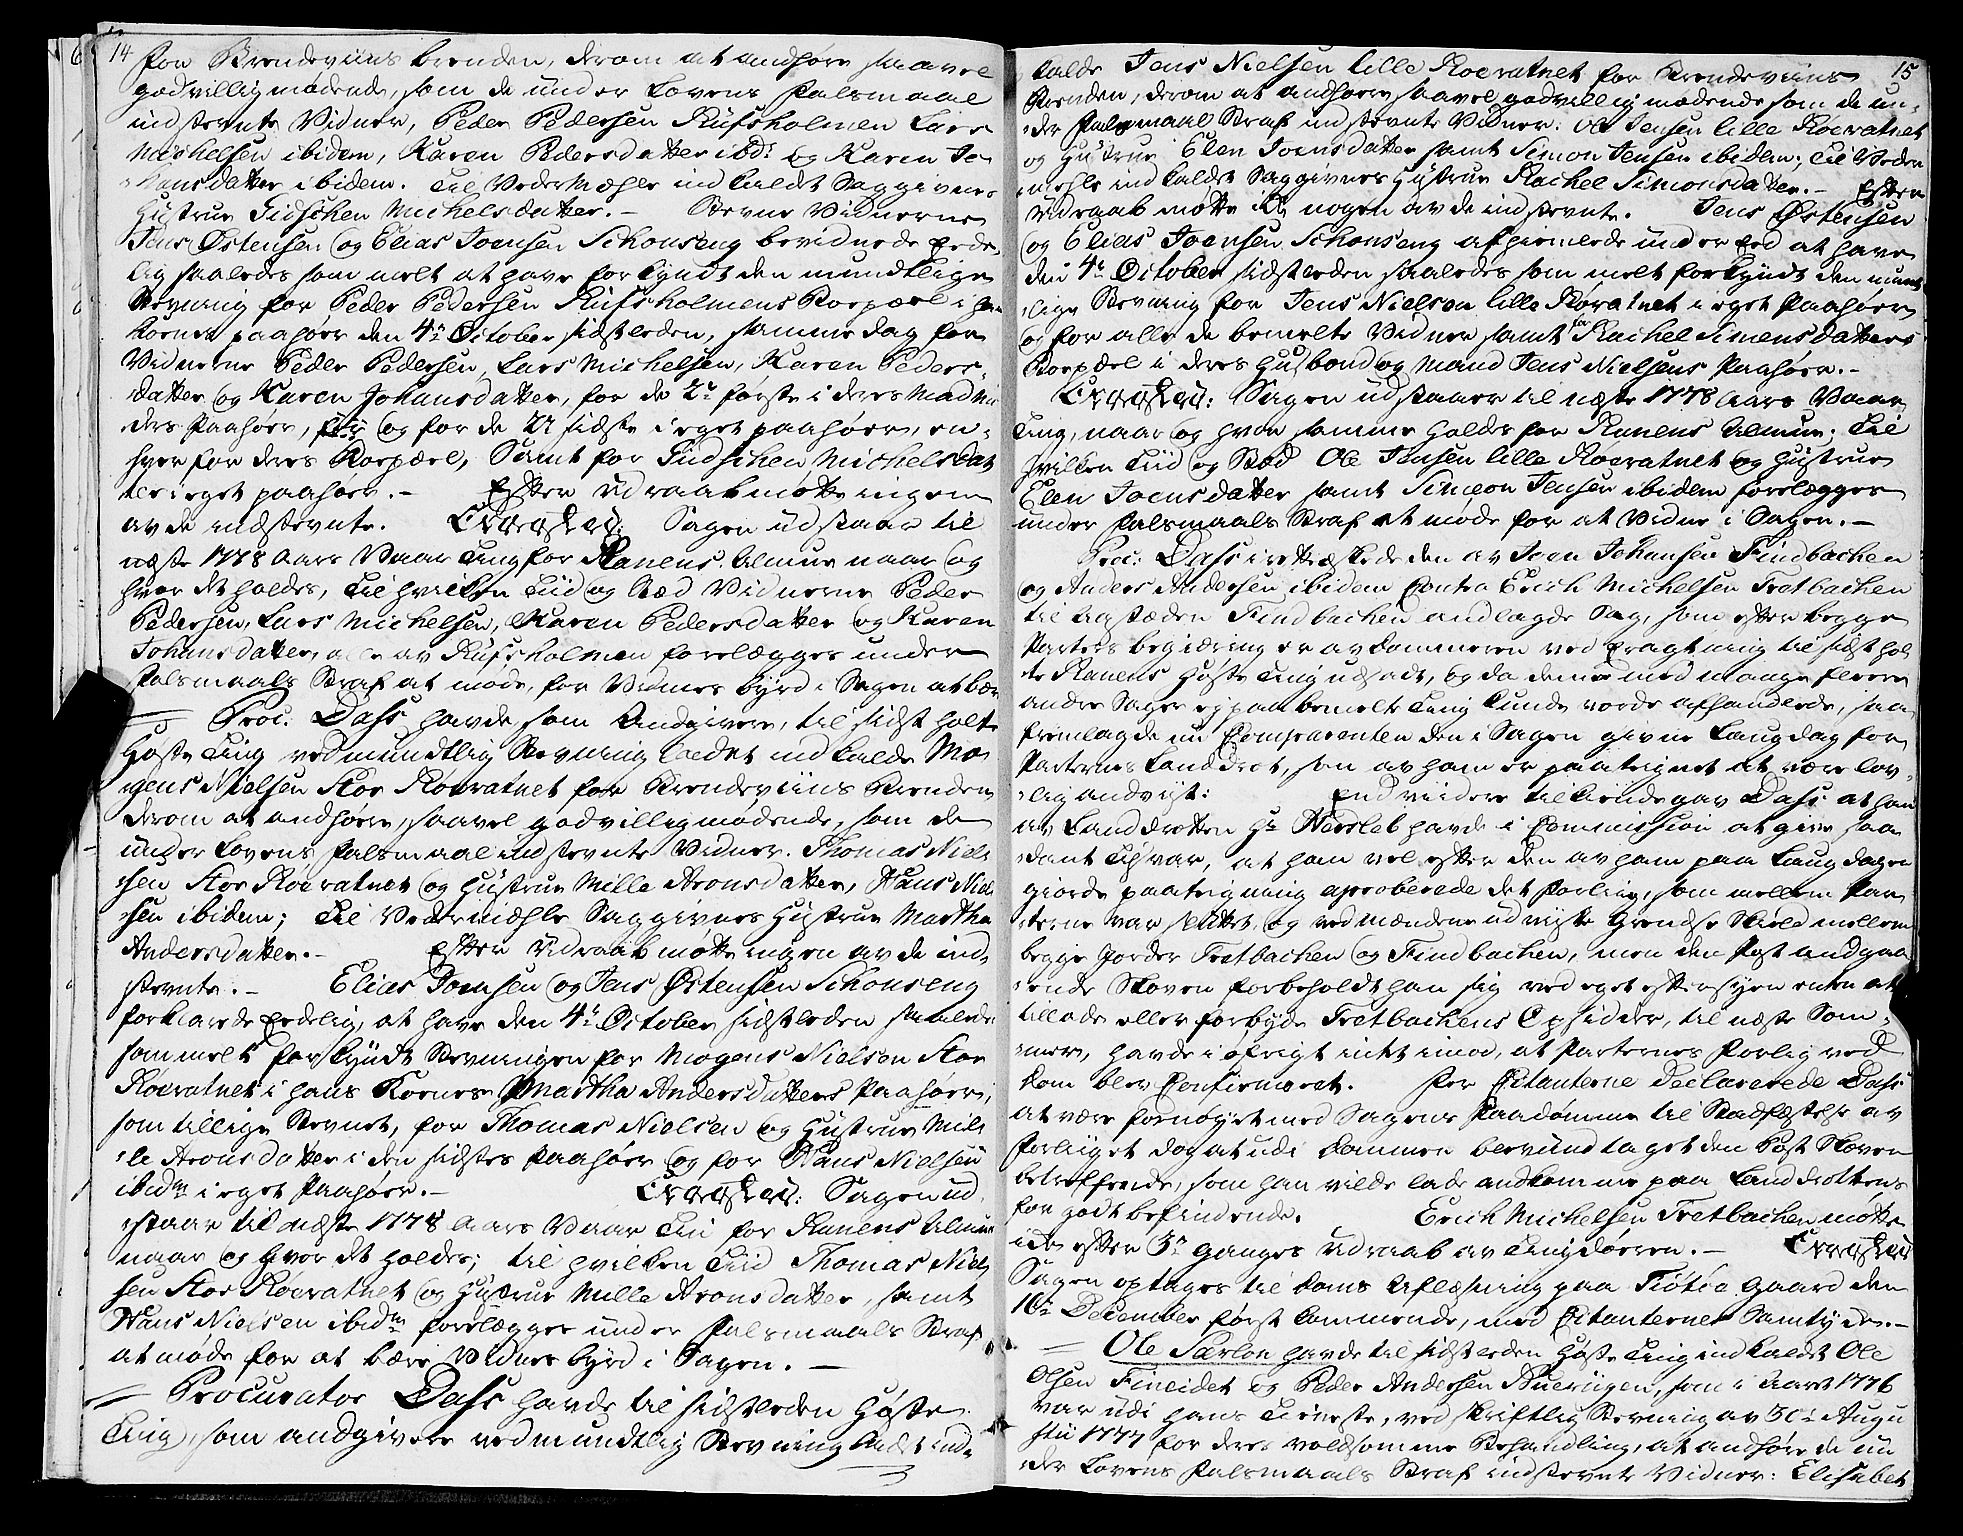 14
for Brendeviins brenden, derom at andhøre saavel
godvilligmødende, som de under Lovens Falsmaal
indstevnte Vidner, Peder Pedersen Rüfsholmen Lars
Michelsen ibidem, Karen Pedersdatter ibd: og Karen Jo-
hansdatter ibidem. Til VederMæhle indkaldet Saggivernes
Hüstrue Gidschen Michelsdatter.- Stevne Vidnerne
Jens Østensen og Elias Joensen Schonseng bevidnede Eede-
lig saaledes som melt at have forkyndt den mundtlige
Stevning for Peder Pedersen Rüfsholmens Boepæl i
Konens paahør den 4de October sidstleden, samme dag for
Vidnerne Peder Pedersen, Lars Michelsen, Karen Peders-
datter og Karen Johansdatter, for de 2de første i deres Mad mo
ders Paahør, og for de 2 sidste i eget paahør, en-
hver for deres Boepæl, Samt for Gidschen Michelsdat
ter i eget paahør.- Efter Udraab møtte ingen
av de indstevnte. Eragtet: Sagen udstaar til
næste 1778 Aars Vaar Ting for Ranens Almue naar og
hvor det holdes, Til hvilken Tiid og Stæd Vidnerne Peder
Pedersen, Lars Michelsen, Karen Pedersdatter og Karen
Johansdatter, alle av Rüfsholmen forelægges under
Falsmaals Straf at møde, for Vidnes byrd i Sagen at bære
Proc: Dass havde, som Andgivere, til sidst holte
Høste Ting ved mundtlig Stevning ladet indkalde Mo-
gens Nielsen Stor Røevatnet for Brendeviins Brenden
derom at andhøre, saavel godvilligmødende, som de
under Lovens Falsmaal indstevnte Vidner. Thomas Niel-
sen Stor Røevatnet og Hüstrue Mille Aronsdatter, Hans Niel
sen ibidem; Til Vedermæhle Saggivernes Hüstrue Martha
Andersdatter.- Efter Udraab møtte ingen av de ind-
stevnte.- Elias Joensen og Jens Østensen Schonseng
forklarede Eedelig, at have den 4de October sidstleden saaledes
som melt forkyndt Stevningen for Mogens Nielsen Stor
Røevatnet i hans Kones Martha Andersdatters Paahør,
som tillige Stevnet, for Thomas Nielsen og Hüstrue Mil-
le Aronsdatter i den sidstes Paahør og for Hans Nielsen
ibidm i eget Paahør.- Eragtet: Sagen ud-
staar til næste 1778 Aars Vaar Tin for Ranens Almue
naar og hvor det holdes; til hvilken Tiid Thomas Niel-
sen Stor Røevatnet og Hüstrue Mille Aronsdatter, samt
Hans Nielsen ibidm forelægges under Falsmaals Straf
at møde for at bære Vidnesbyrd i Sagen.-
Procurator Dass havde til sidstleden Høste
Ting, som andgivere ved mundtlig Stevning ladet ind-
15
kalde Jens Nielsen lille Røevatnet for Brendeviins
Brenden, derom at andhøre saavel godvillig mødende som de un-
der Falsmaal Straf indstevnte Vidner: Ole Jensen lille Røevatnet
og Hüstrue Elen Joensdatter samt Simon Jensen ibidem; Til Veder
mehle indkaldet Saggivernes Hüstrue Rachel Simonsdatter.- Efter
Udraab møtte ikke nogen av de indstevnte. Jens Østensen
og Elias Joensen Schonseng afhiemlede under Eed at have
den 4de October sidstleden saaledes som melt forkyndt den munt
lige Stevning for Jens Nielsen lille Røevatnet i eget Paahør
og for alle de bemelte Vidner samt for Rachel Simensdatters
Boepæl i deres Husbond og Mand Jens Nielsens Paahør.-
Eragtet: Sagen udstaar til næste 1778 Aars Vaar
Ting, naar og hvor samme holdes for Ranens Almue; Til
hvilken Tiid og Stæd Ole Jensen lille Røevatnet og Hüstrue
Elen Joensdatter samt Simeon Jensen ibidem forelægges
under Falsmaals Straf at møde for at Vidne i Sagen.-
Proc: Dass i rette æskede den av Joen Johansen Findbachen
og Anders Andersen ibidem Contra Erich Michelsen Tretbachen
til Aastæden Findbachen andlagde Sag, som efter begge
Parters begiæring er av Dommeren ved Eragtning til sidst hol-
te Ranens Høste Ting udsadt, og da denne med mange fleere
andre Sager ej paa bemelte Ting kunde vorde afhandlede, saa
fremlagde nu Comparenten den i Sagen givne Laugdag for
Parternes Landdrot, som av ham er paateignet at være lov-
lig andviist: End videre tilkiendegav Dass at han
av Landdrotten Hr Hersleb havde i Commission at give saa
dant Tilsvar, at han vel efter den av ham paa Laugdagen
giorde paateigning aproberede det Forliig, som mellem Par-
terne var sluttet, og ved mændene udviiste Grendse Skield mellem
begge Gorder Tretbachen og Findbachen, men den Post andgaa
ende Skoven forbeholdt han sig ved eget eftersyen enten at
tillade eller forbyde Tretbachens Opsidder, til næste Som-
mer, havde i øfrigt inkt imod, at Parternes Forlig ved
Dom blev Confirmeret. For Citanterne Declarerede Dass
at være fornøyet med Sagens Paadømme til Stadfæstelse av
Forliiget dog at udi Dommen blev undtaget den Post Skoven
betreffende, som han vilde lade andkomme paa Landdrottens
for godt befindende. Erich Michelsen Tretbachen møtte
icke efter 3de ganges Udraab av Tingdøren.- Eragtet
Sagen optages til Doms Aflæsning paa Tiøtøe gaard den
16de December først kommende, med Citanternes Samtycke.-
Ole Særlon havde til sidstleden Høste Ting indkaldet Ole
Olsen Fineidet og Peder Andersen Buerügen, som i Aaret 1776
var udi hans Tieneste, ved skriftlig Stevning av 30te Augu
stii 1777 for deres voldsomme Behandling, at andhøre de un
der Lovens Falsmaals Straf indstevnte Vidner: Elisabet